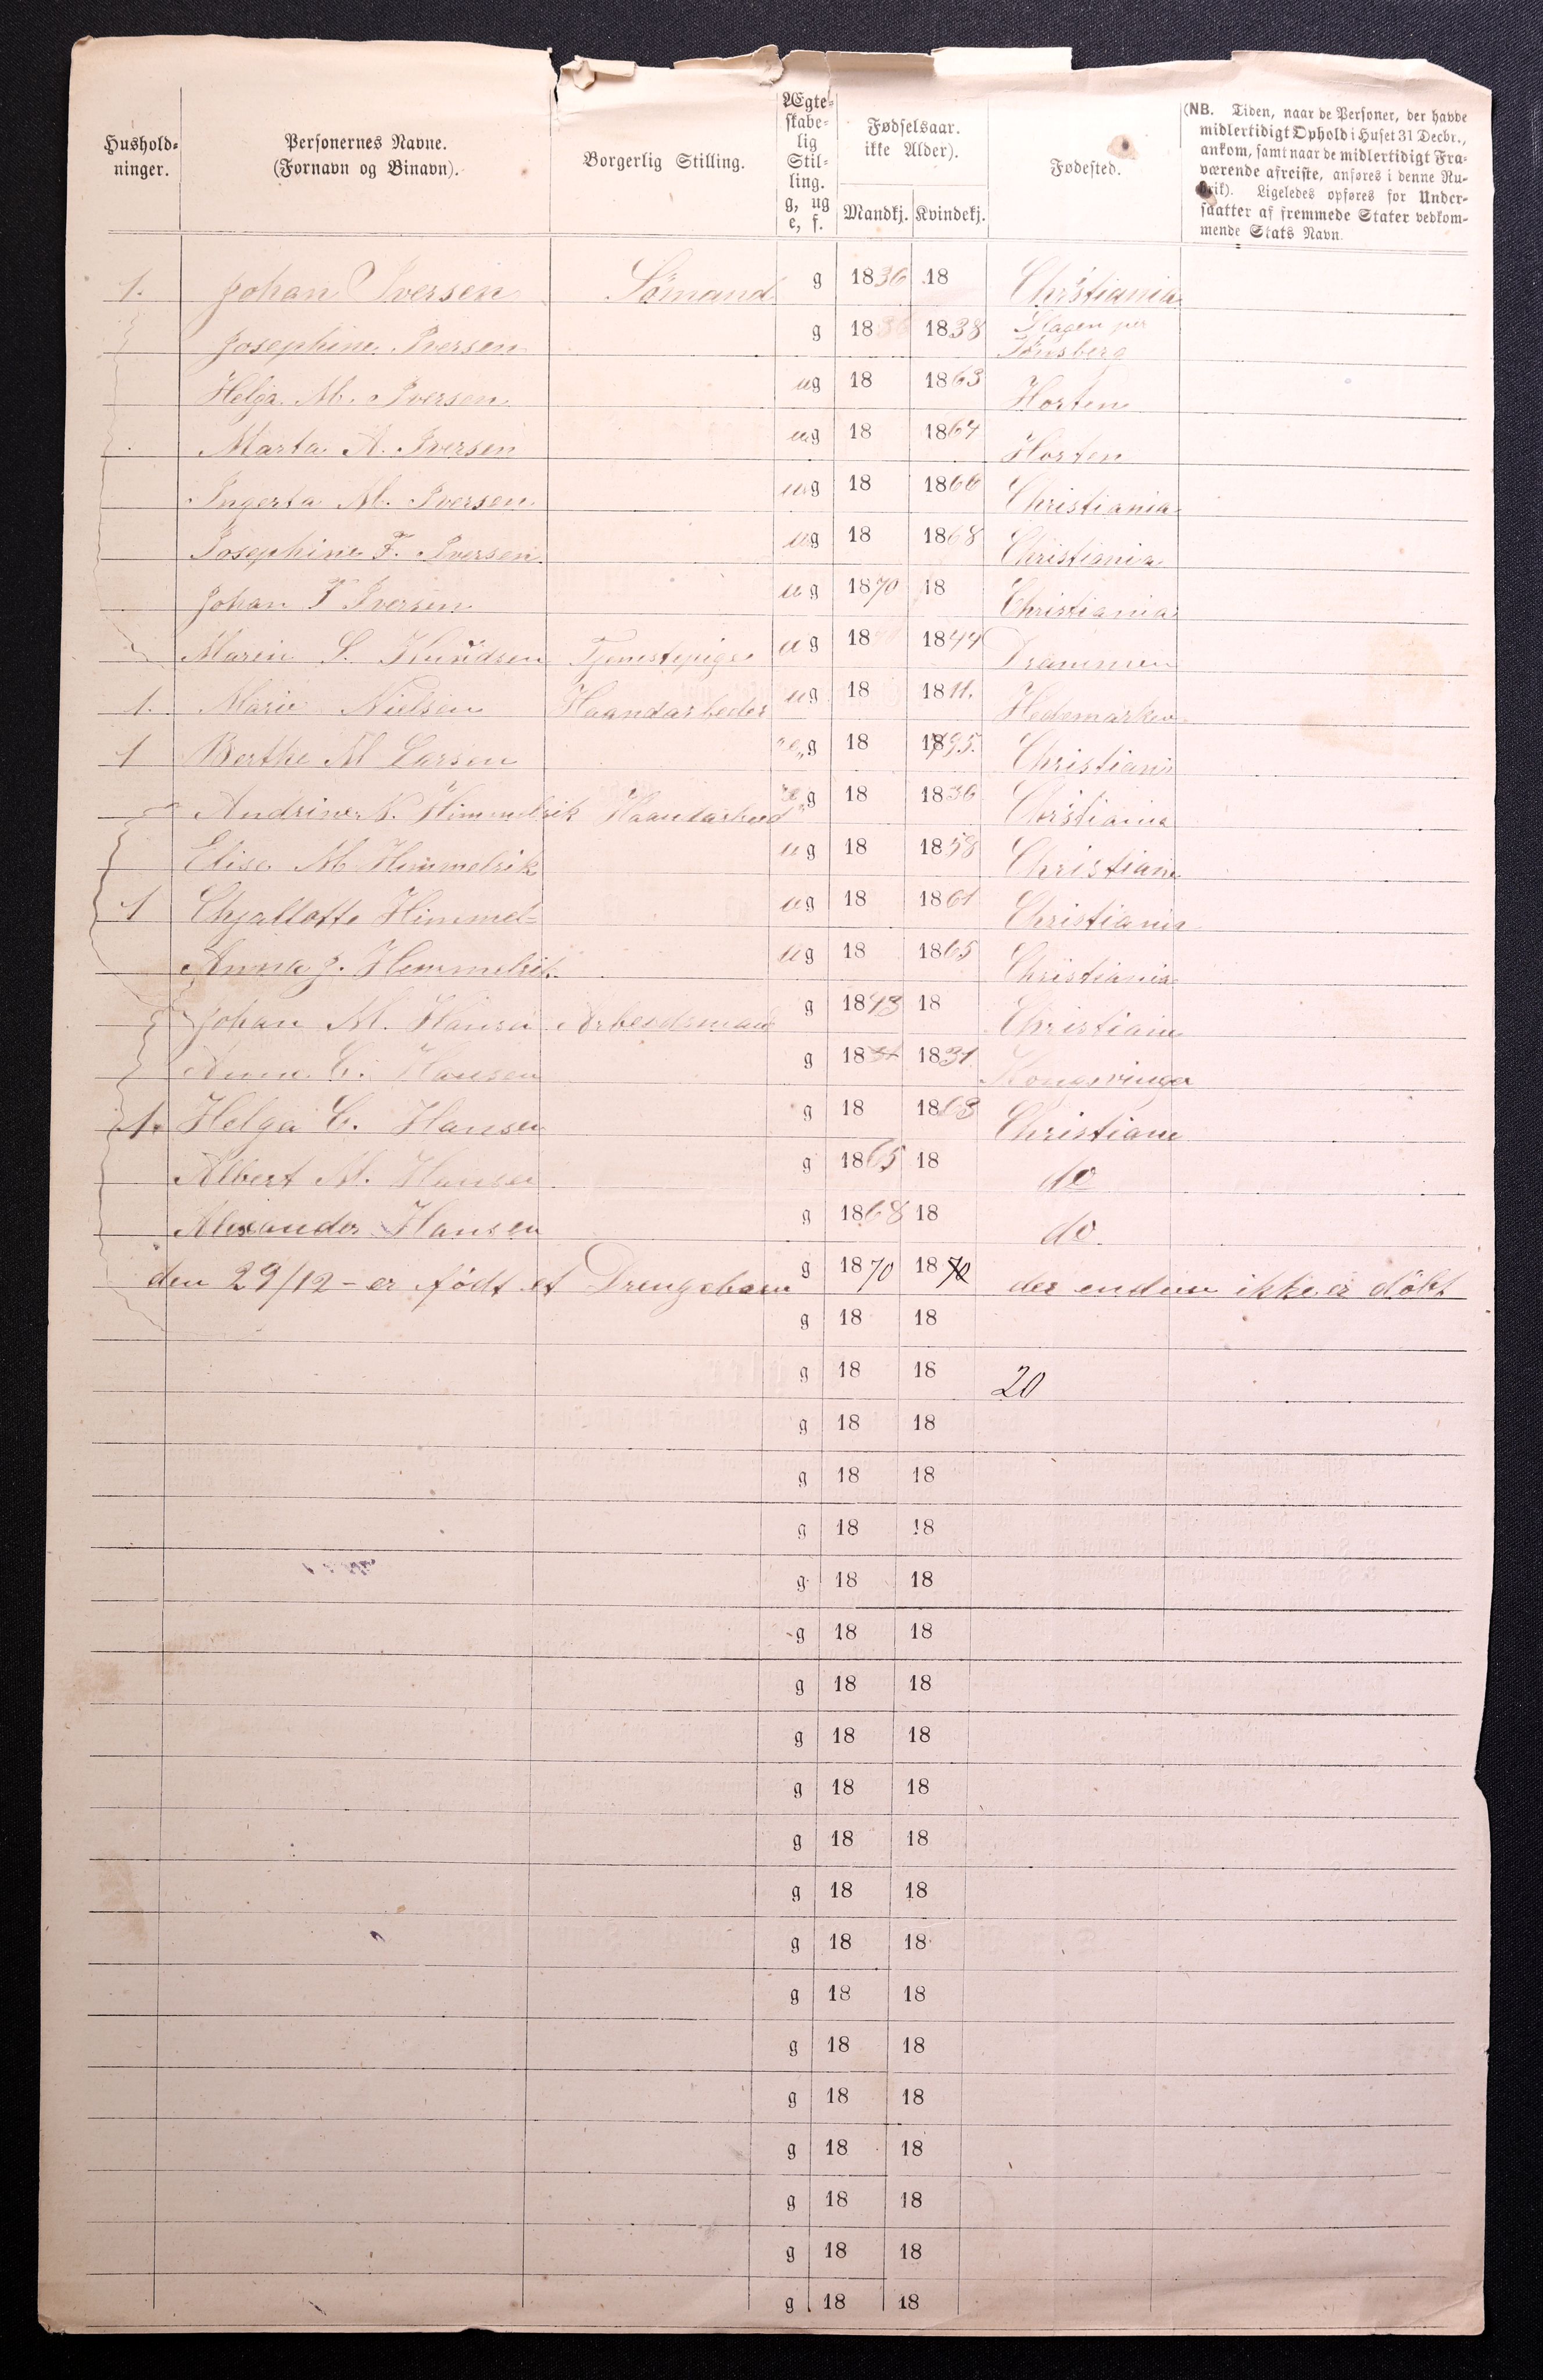 Hushold-
ninger.
Personernes Navne.
(Fornavn og Binavn).
Borgerlig Stilling.
Ægte-
skabe-
lig
Stil-
ling.
g, ug
e, f.
Fødselsaar.
ikke Alder).
Mandkj. Kvindekj.
Fødested.
(NB. Tiden, naar de Personer, der havde
midlertidigt Ophold i Huset 31 Decbr.,
ankom, samt naar de midlertidigt Fra-
værende afreiste, anføres i denne Ru-
brik). Ligeledes opføres for Under-
saatter af fremmede Stater vedkom-
mende Stats Navn.
1. Johan Iversen Sømand g 1836 18 Christiania
Josephine Iversen g 18 1838 Slagen per Tønsberg
Helga M. Iversen ug 18 1863 Horten
Marta A. Iversen ug 18 1864 Horten
Ingerta M. Iversen ug 18 1866 Christiania
Josephine F. Iversen ug 18 1868 Christiania
Johan F Iversen ug 1870 18 Christiania
Maren S. Knudsen Tjenestepige ug 18 1844 Drammen
1. Marie Nielsen Haandarbeder ug 18 1811. Hedemarken
1 Berthe M Larsen g 18 1795. Christiania
Andrine N. Himmelrik Haandarbed g 18 1836 Christiania
Elise M Himmelrik ug 18 1858 Christiania
1 Chjallotte Himmel- ug 18 1861 Christiania
Anna J. Himmelrik ug 18 1865 Christiania
Johan M. Hansen Arbeidsmand g 1843 18 Christiania
Anne C. Hansen g 1831 1831. Kongsvinger
1. Helga C. Hansen g 18 1863 Christiane
Albert M. Hansen g 1865 18 do
Alexander Hansen g 1868 18 do.
den 29/12 - er født et Drengebarn g 1870 1870 der endnu ikke er döbt
g 18 18
g 18 18 20
g 18 18
g 18 18
g 18 18
g 18 18
g 18 18
g 18 18
g 18 18
g 18 18
g 18 18
g 18 18
g 18 18
g 18 18
g 18 18
g 18 18
g 18 18
g 18 18
g 18 18
g 18 18